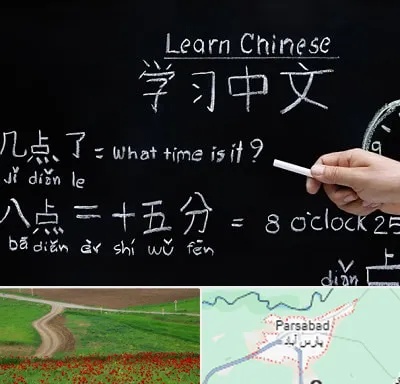 Learn Chinese
学习中文
9
几点了 = what time is it ?
jǐ diǎn le
八点二十五分 = 8 o'clock 25
bā diǎn èr shí wǔ fēn
上
diǎn
Parsabad
پارس آباد